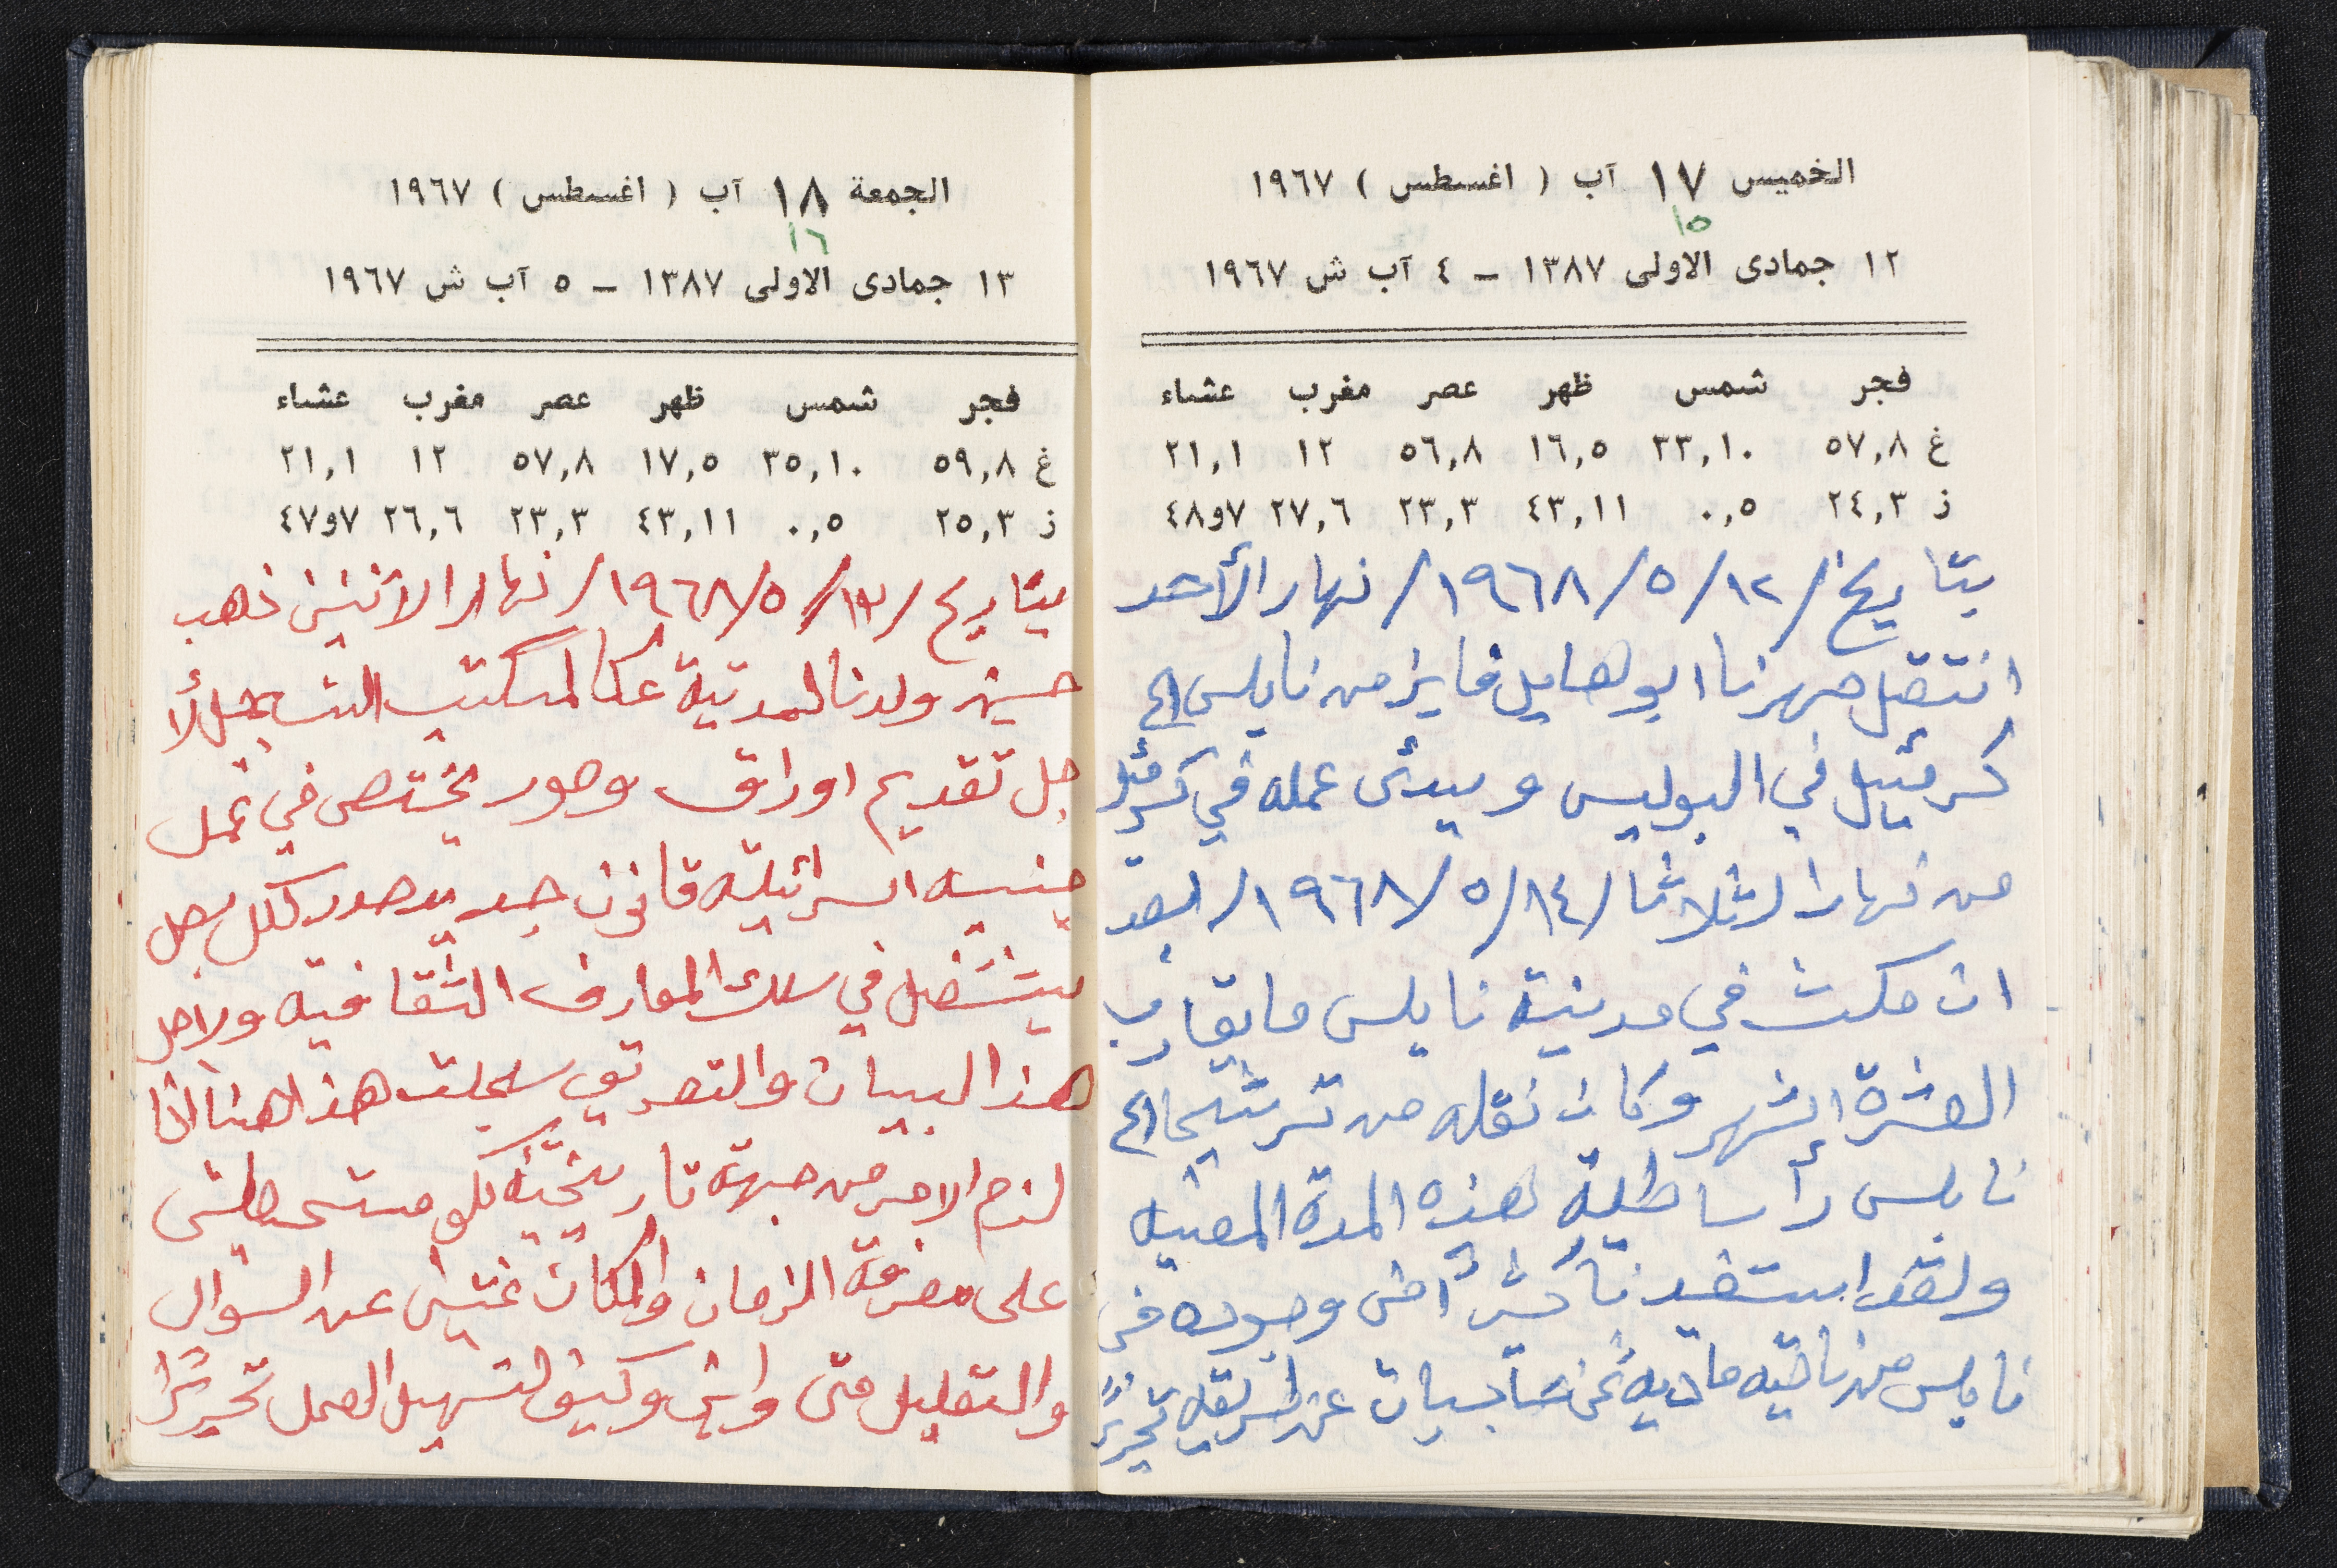 الخميس ١٧ آب ( اغسطس ) ١٩٦٧
١٥
١٢ جمادى الاولى ١٣٨٧ – ٤ آب ش ١٩٦٧
فجر شمس ظهر عصر مغرب عشاء
غ ٥٧,٨ ٣٣,١٠ ١٦,٥ ٥٦,٨ ١٢ ٢١,١
ز ٢٤,٣ ٠,٥ ٤٣,١١ ٢٣,٣ ٢٧,٦ ٧و٤٨
بتاريخ /١٢/٥/١٩٦٨/ نهار الأحد
انتقل صهرنا ابو هايل فايز من نابلس الى
كرمئيل في البوليس ويبدئ عمله في كرمئيل
من نهار الثلاثا /١٤/٥/١٩٦٨/ بعد
ان مكث في مدينة نابلس ما يقارب
العشرة اشهر وكان نقله من ترشيحا الى
نابلس رأسا طيلة هذه المدة المعنيه
ولقد استفدنا وجوده في
نابلس من ناحيه ماديه عن طريقه تحريرً
الجمعة ١٨ آب ( اغسطس ) ١٩٦٧
١٦
١٣ جمادى الاولى ١٣٨٧ – ٥ آب ش ١٩٦٧
فجر شمس ظهر عصر مغرب عشاء
غ ٥٩,٨ ٣٥,١٠ ١٧,٥ ٥٧,٨ ١٢ ٢١,١
ز ٢٥,٣ ٠,٥ ٤٣,١١ ٢٣,٣ ٢٦,٦ ٧و٤٧
بتاريخ /١٣/٥/١٩٦٨/ نهار الاثنين ذهب
حسين ولدنا لمدينة عكا لمكتب التسجيل لأ
جل تقديم اوراق وصور يختص في عمل
جنسيه اسرائيلية قانون جديد صدر لكل رجل
يشتغل في سلك المعارف الثقافيه ولاجل
هذا البيان والتعريف سجلت هذا هنا اذا
لزم الامر من جهة تاريخية
على معرفة الزمان والمكان عن السوال
والتعليل متى واين وكيف لتسهيل العمل تحريرًا